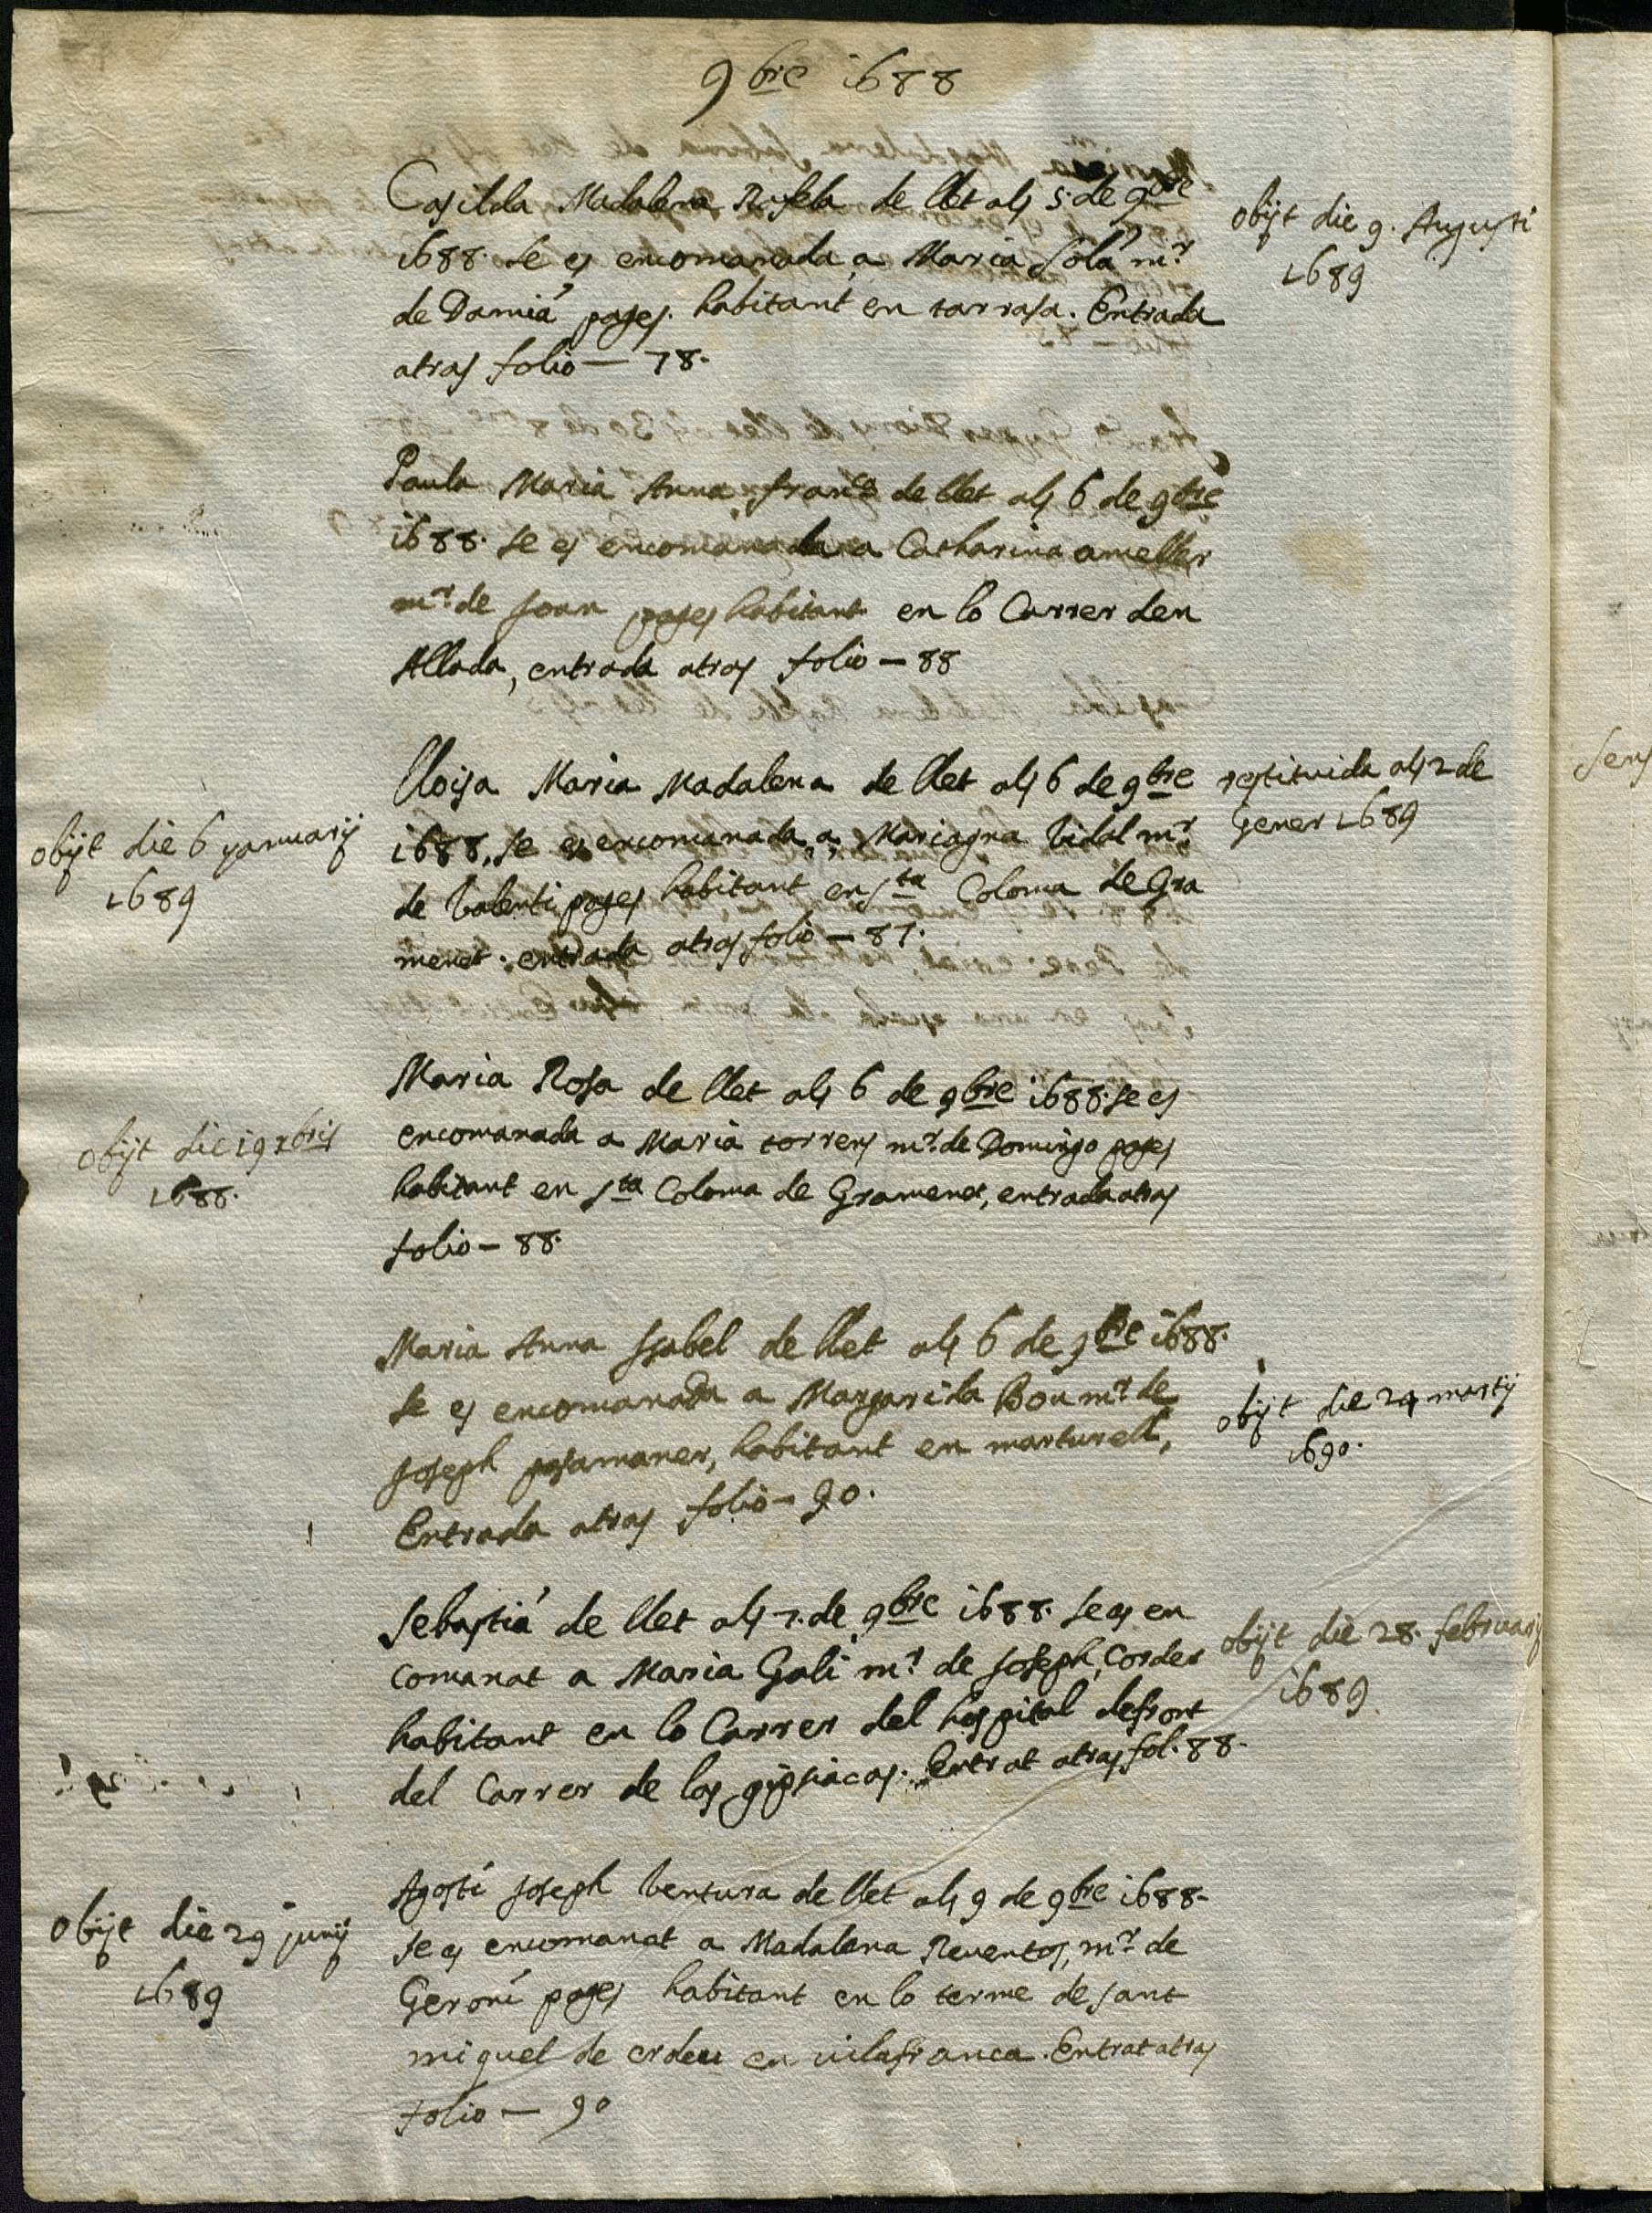 9bre 1688
Casilda Madalena Rafela de llet als 5 de 9bre
1688. se es encomanada a Maria Solá mr.
de Damiá pages. habitant en tarrasa. Entrada
atras folio — 78.
obijt die 9. Augusti
1689
Paula Maria Anna franca de llet als 6 de 9bre
1688. se es encomanada a Catharina ameller
mr. de Joan pages habitant en lo Carrer den
Allada, entrada atras folio — 88
lloisa Maria Madalena de llet als 6 de 9bre
1688. se es encomanada, a, Mariagna Vidal mr.
de Valenti pages habitant en sta Coloma de Gra
menet. entrada atras folio — 87.
restituida als 2 de
Gener 1689
obijt die 6 januarij
1689
Maria Rosa de llet als 6 de 9bre 1688. se es
encomanada a Maria torrens mr. de Domingo pages
habitant en sta Coloma de Gramenet, entrada atras
folio — 88.
obijt die 19 xbris
1688.
Maria Anna Isabel de llet als 6 de 9bre 1688.
se es encomanada a Margarida Bou mr. de
Joseph pasamaner, habitant en marturell,
Entrada atras folio — 90.
obijt die 24 martij
1690.
Sebastiá de llet als 7. de 9bre 1688. se es en
comanat a Maria Gali mr. de Joseph, Corder
habitant en lo Carrer del hospital defront
del Carrer de las gipsiacas. Entrat atras fol. 88.
obijt die 28. februarij
1689.
Agosti Joseph Ventura de llet als 9 de 9bre 1688.
se es encomanat a Madalena Reventos, mr. de
Geroni pages habitant en lo terme de sant
miquel de erdeu en vilafranca. Entrat atras
folio — 90
obijt die 29 junij
1689